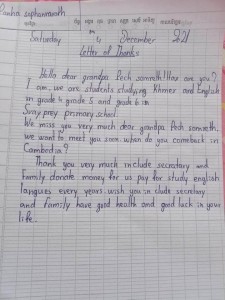 Saturday 4 December 2021
Letter of Thanks
Hello dear grandpa Pech sonreth! How are you?
I am, we are students studying Khmer and English
in grade 4 grade 5 and grade 6 in
Svay prey primary school.
We miss you very much dear grandpa Pech sonreth.
we want to meet you soon when do you comeback in
Cambodia?
Thank you very much include secretary and
Family donate money for us pay for study english
langues every years. wish you in clude secretary
and family have good health and good luck in your
life.